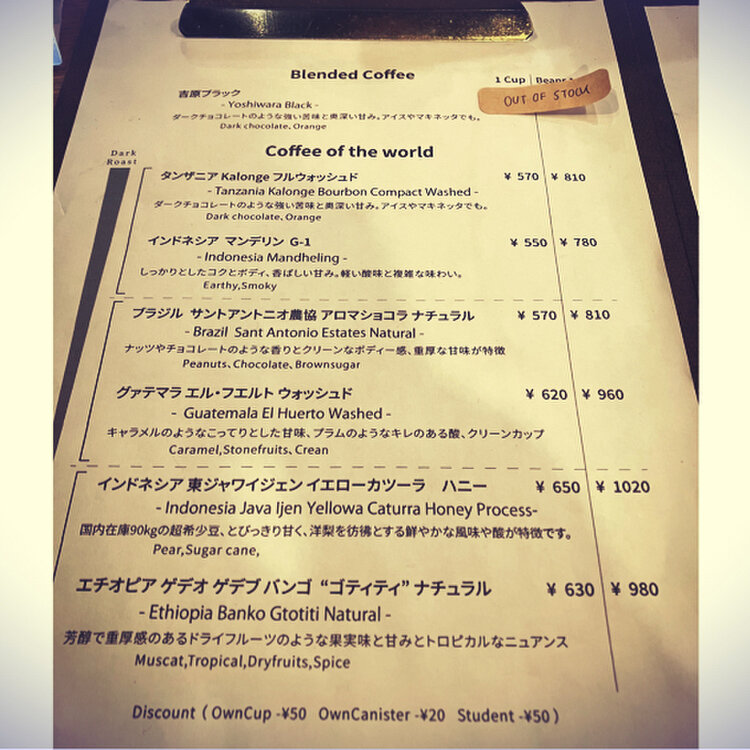 Blended Coffee
1 Cup | Beans
OUT OF STOCK
吉原ブラック
- Yoshiwara Black -
ダークチョコレートのような強い苦味と奥深い甘み。アイスやマキネッタでも。
Dark chocolate、Orange
Coffee of the world
Dark
Roast
タンザニア Kalonge フルウォッシュド ¥ 570 ¥ 810
- Tanzania Kalonge Bourbon Compact Washed -
ダークチョコレートのような強い苦味と奥深い甘み。アイスやマキネッタでも。
Dark chocolate、Orange
インドネシア マンデリン G-1 ¥ 550 ¥ 780
- Indonesia Mandheling -
しっかりとしたコクとボディ、香ばしい甘み。軽い酸味と複雑な味わい。
Earthy,Smoky
ブラジル サントアントニオ農協 アロマショコラ ナチュラル ¥ 570 ¥ 810
- Brazil Sant Antonio Estates Natural -
ナッツやチョコレートのような香りとクリーンなボディー感、重厚な甘味が特徴
Peanuts、Chocolate、Brownsugar
グァテマラ エル・フエルト ウォッシュド ¥ 620 ¥ 960
- Guatemala El Huerto Washed -
キャラメルのようなこってりとした甘味、プラムのようなキレのある酸、クリーンカップ
Caramel,Stonefruits、Crean
インドネシア 東ジャワイジェン イエローカツーラ ハニー ¥ 650 ¥ 1020
- Indonesia Java Ijen Yellowa Caturra Honey Process-
国内在庫90kgの超希少豆、とびっきり甘く、洋梨を彷彿とする鮮やかな風味や酸が特徴です。
Pear,Sugar cane,
エチオピア ゲデオ ゲデブ バンゴ “ゴティティ” ナチュラル ¥ 630 ¥ 980
- Ethiopia Banko Gtotiti Natural -
芳醇で重厚感のあるドライフルーツのような果実味と甘みとトロピカルなニュアンス
Muscat,Tropical,Dryfruits,Spice
Discount ( OwnCup -¥50 OwnCanister -¥20 Student -¥50 )